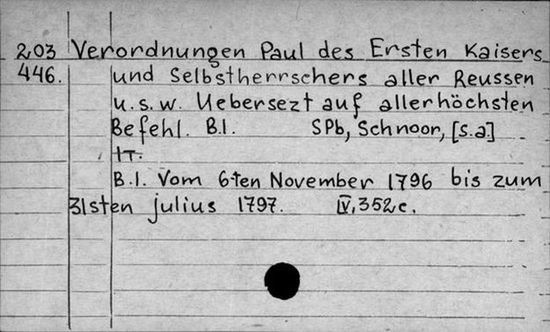 203 Verordnungen Paul des Ersten Kaisers
446. und Selbstherrschers aller Reussen
u.s.w. Uebersezt auf allerhöchsten
Befehl. B.I. SPb, Schnoor, [s.a]
1т.
B.I. Vom 6ten November 1796 bis zum
31sten julius 1797. IV, 352c.